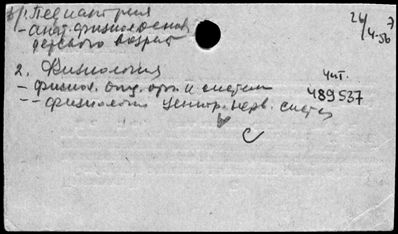 б/. Педиатрия
- анат. физиол. основ
детского возраст
24/4-56
2. Физиология
- физиол. отд. орг. и систем
-- физиология центр. нерв. систем
Чит.
489537
С